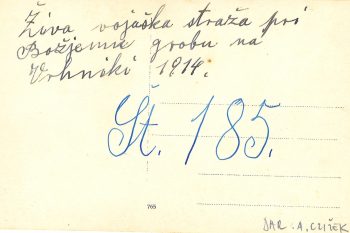 Živa vojaška straža pri
Božjemu grobu na
Vrhniki 1914.
Št. 185.
765
DAR. A. CLIŽEK